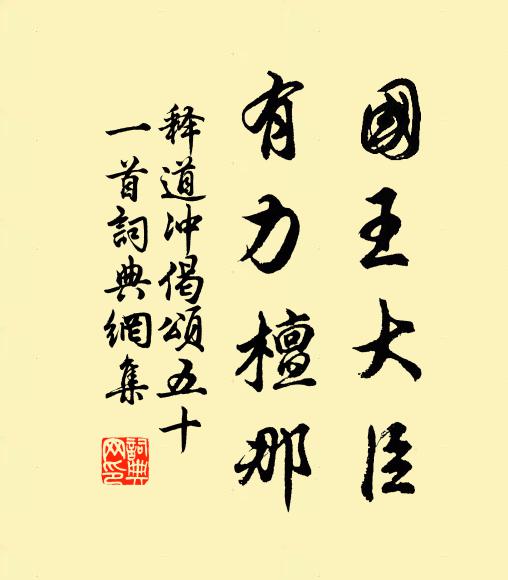 國王大臣
有力檀那
释道冲偈頌五十
一首詞典網集
詞典
网印